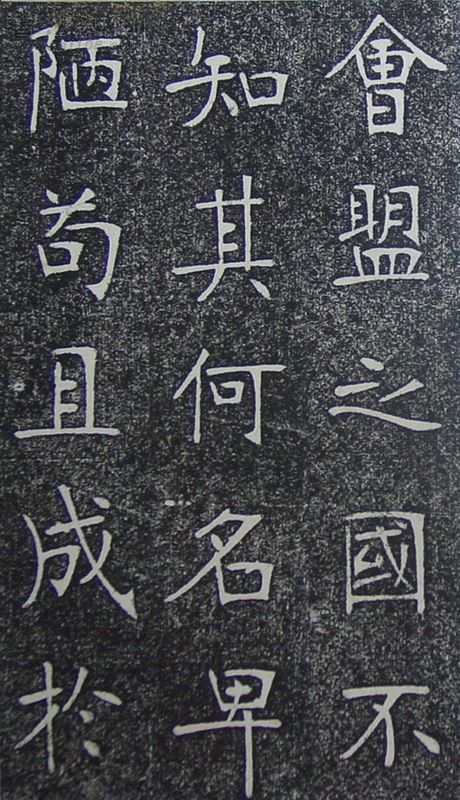 會盟之國不
知其何名卑
陋苟且成於